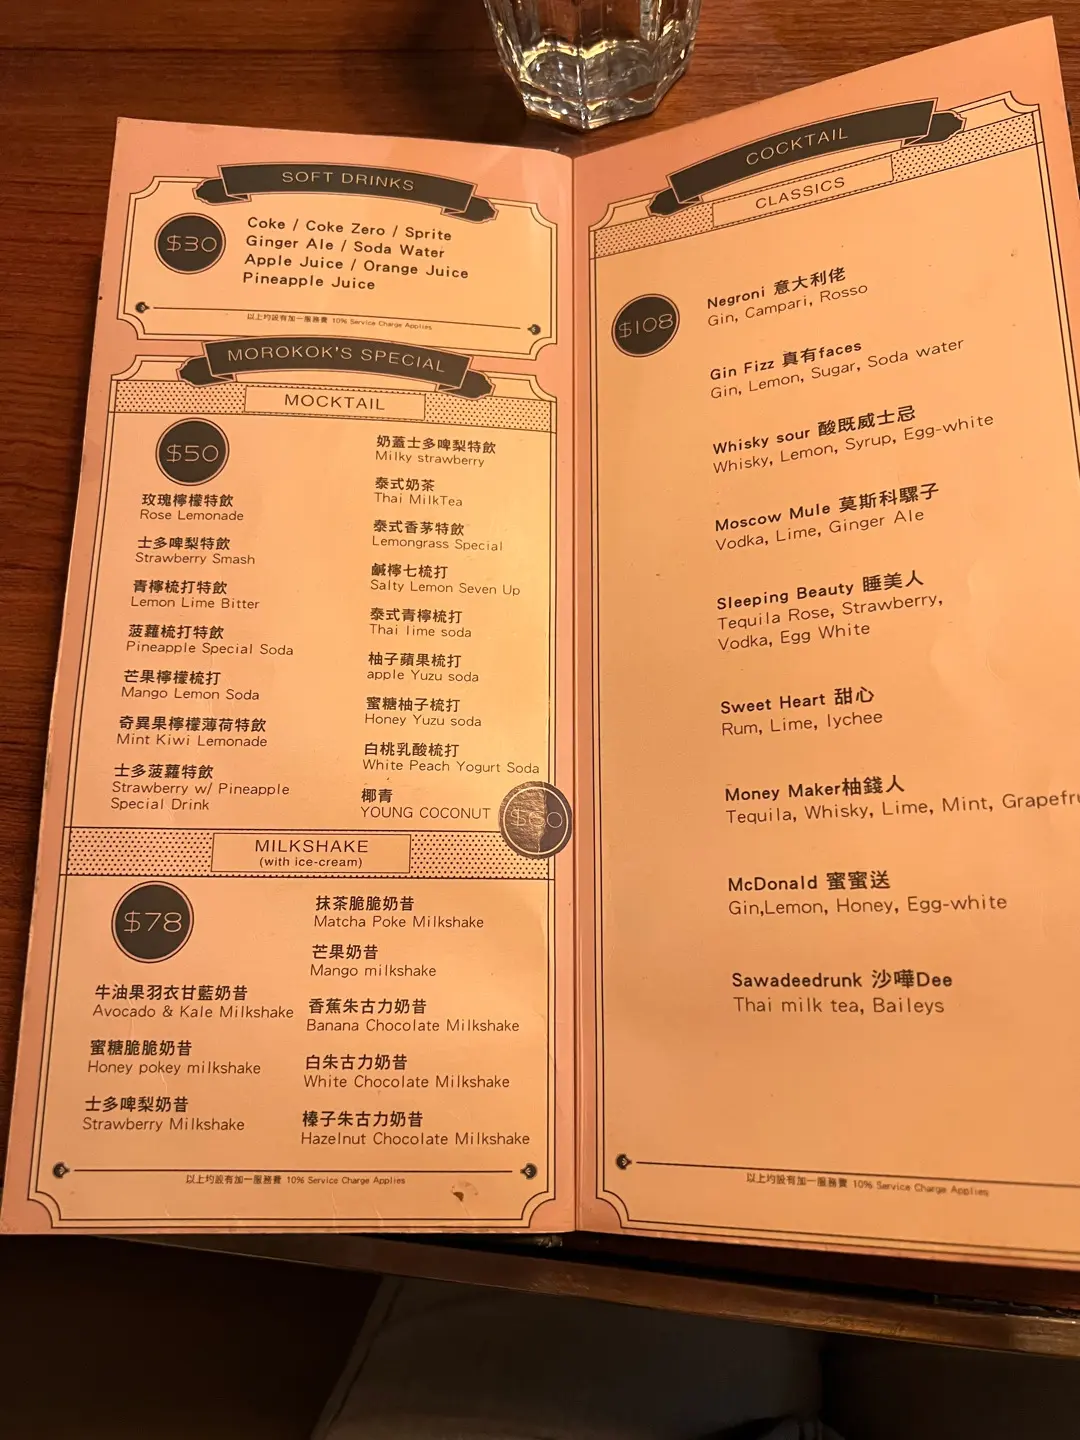 SOFT DRINKS
$30
Coke / Coke Zero / Sprite
Ginger Ale / Soda Water
Apple Juice / Orange Juice
Pineapple Juice
以上均設有加一服務費 10% Service Charge Applies
MOROKOK'S SPECIAL
MOCKTAIL
$50
玫瑰檸檬特飲
Rose Lemonade
士多啤梨特飲
Strawberry Smash
青檸梳打特飲
Lemon Lime Bitter
菠蘿梳打特飲
Pineapple Special Soda
芒果檸檬梳打
Mango Lemon Soda
奇異果檸檬薄荷特飲
Mint Kiwi Lemonade
士多菠蘿特飲
Strawberry w/ Pineapple
Special Drink
奶蓋士多啤梨特飲
Milky strawberry
泰式奶茶
Thai MilkTea
泰式香茅特飲
Lemongrass Special
鹹檸七梳打
Salty Lemon Seven Up
泰式青檸梳打
Thai lime soda
柚子蘋果梳打
apple Yuzu soda
蜜糖柚子梳打
Honey Yuzu soda
白桃乳酸梳打
White Peach Yogurt Soda
椰青
YOUNG COCONUT
$60
MILKSHAKE
(with ice-cream)
$78
牛油果羽衣甘藍奶昔
Avocado & Kale Milkshake
蜜糖脆脆奶昔
Honey pokey milkshake
士多啤梨奶昔
Strawberry Milkshake
抹茶脆脆奶昔
Matcha Poke Milkshake
芒果奶昔
Mango milkshake
香蕉朱古力奶昔
Banana Chocolate Milkshake
白朱古力奶昔
White Chocolate Milkshake
榛子朱古力奶昔
Hazelnut Chocolate Milkshake
以上均設有加一服務費 10% Service Charge Applies
COCKTAIL
CLASSICS
$108
Negroni 意大利佬
Gin, Campari, Rosso
Gin Fizz 真有faces
Gin, Lemon, Sugar, Soda water
Whisky sour 酸既威士忌
Whisky, Lemon, Syrup, Egg-white
Moscow Mule 莫斯科騾子
Vodka, Lime, Ginger Ale
Sleeping Beauty 睡美人
Tequila Rose, Strawberry,
Vodka, Egg White
Sweet Heart 甜心
Rum, Lime, lychee
Money Maker柚錢人
Tequila, Whisky, Lime, Mint, Grapefru
McDonald 蜜蜜送
Gin,Lemon, Honey, Egg-white
Sawadeedrunk 沙嘩Dee
Thai milk tea, Baileys
以上均設有加一服務費 10% Service Charge Applies